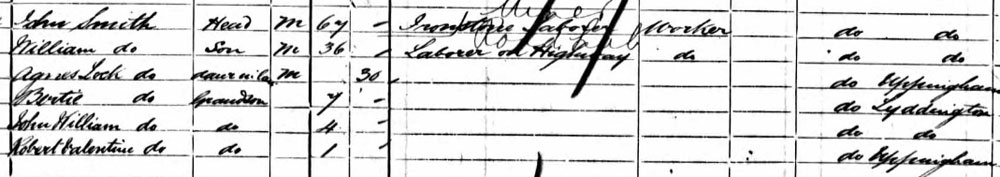 John Smith Head M 67 - Ironstone Laborer Worker do do
William do Son M 36 - Laborer on Highway do do do
Agnes Lock do daur in law M 30 - do Uppingham
Bertie do Grandson 7 - do Lyddington
John William do do 4 - do do
Robert Valentine do do 1 - do Uppingham